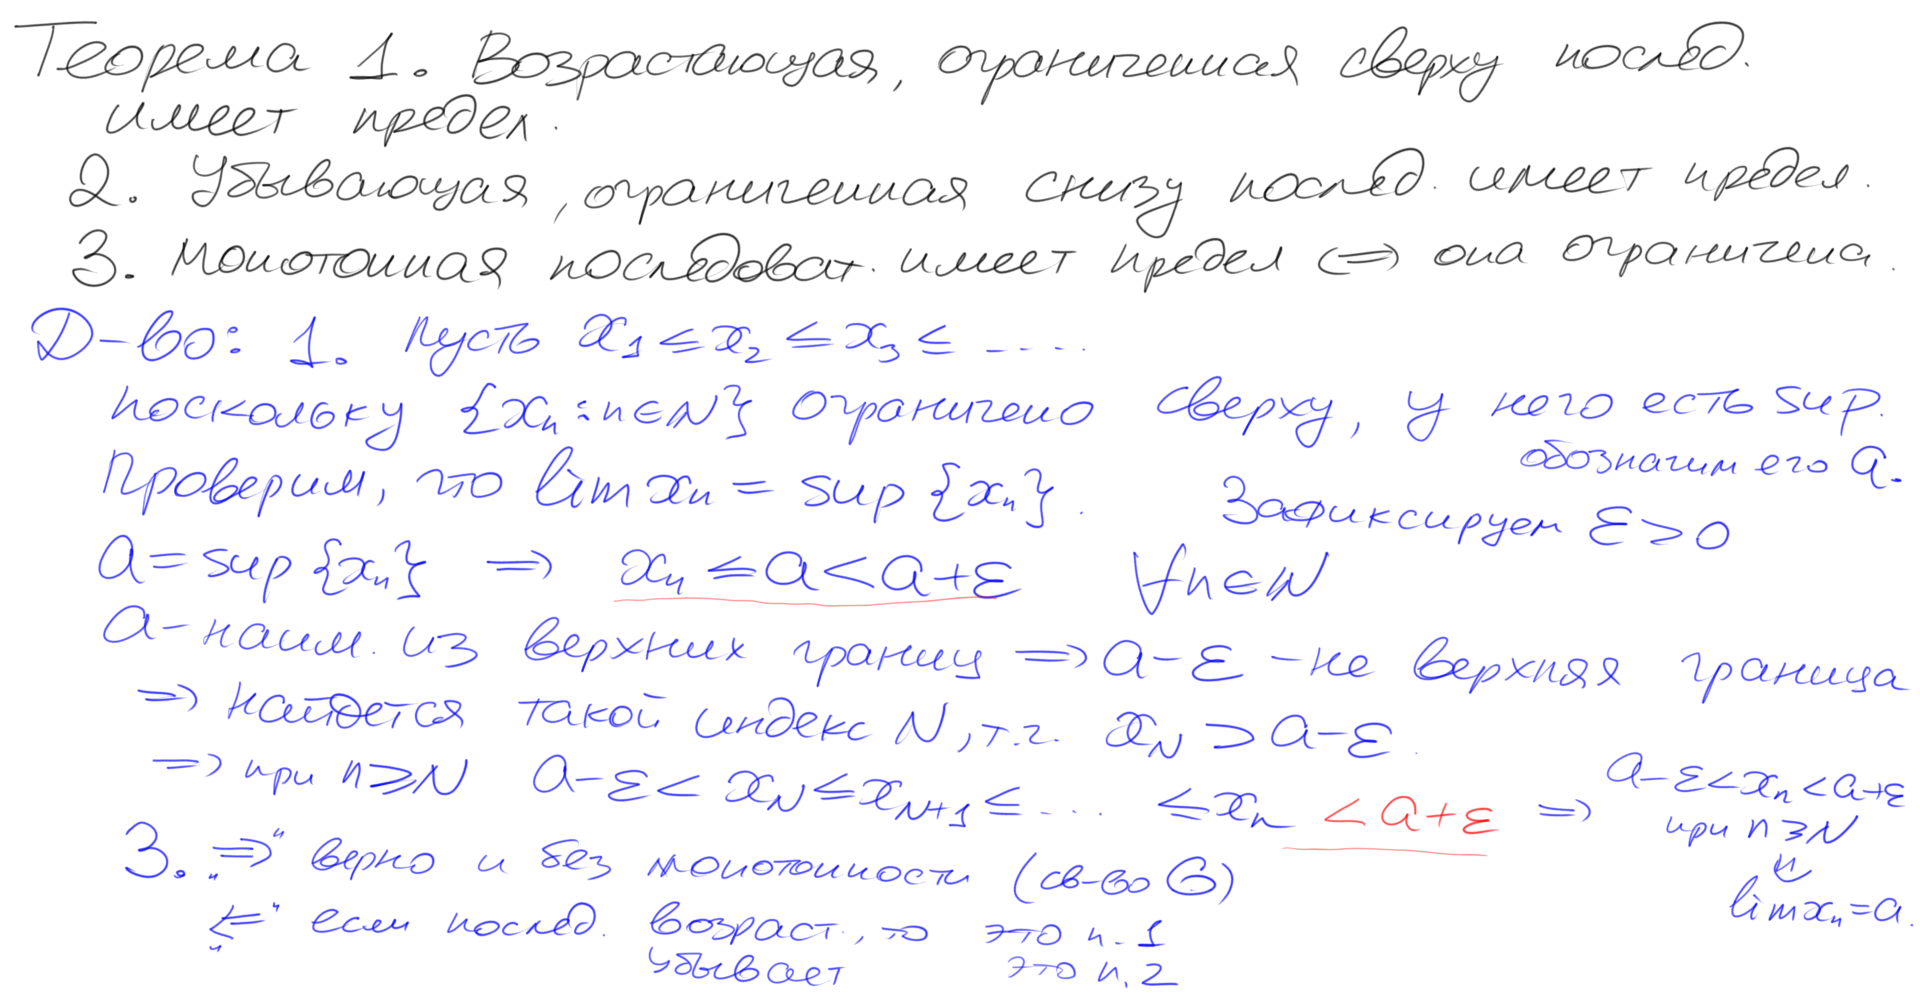 Теорема 1. Возрастающая, ограниченная сверху послед.
имеет предел.
2. Убывающая, ограниченная снизу послед. имеет предел.
3. Монотонная последоват. имеет предел <=> она ограничена.
Д-во: 1. Пусть x₁ ≤ x₂ ≤ x₃ ≤ ....
поскольку {xₙ : n∈ℕ} ограничено сверху, у него есть sup.
обозначим его a.
Проверим, что lim xₙ = sup {xₙ}. Зафиксируем ε > 0
a = sup {xₙ} => xₙ ≤ a < a+ε ∀n∈ℕ
a - наим. из верхних границ => a-ε - не верхняя граница
=> найдется такой индекс N, т.ч. x_N > a-ε.
=> при n ≥ N a-ε < x_N ≤ x_{N+1} ≤ ... ≤ xₙ < a+ε => a-ε < xₙ < a+ε
при n ≥ N
⇓
lim xₙ = a.
3. „=>" верно и без монотонности (св-во 6)
„<=" если послед. возраст., то это п. 1
убывает это п. 2